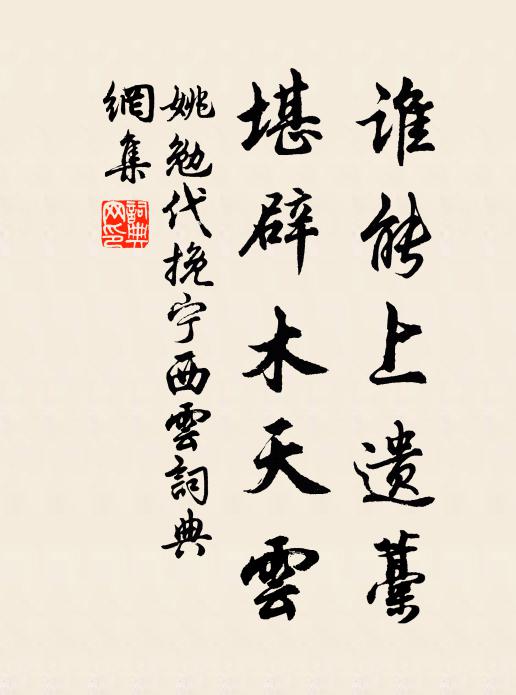 誰能上遺藁
堪辟木天雲
姚勉代挽宁西雲詞典
網集
詞典網印